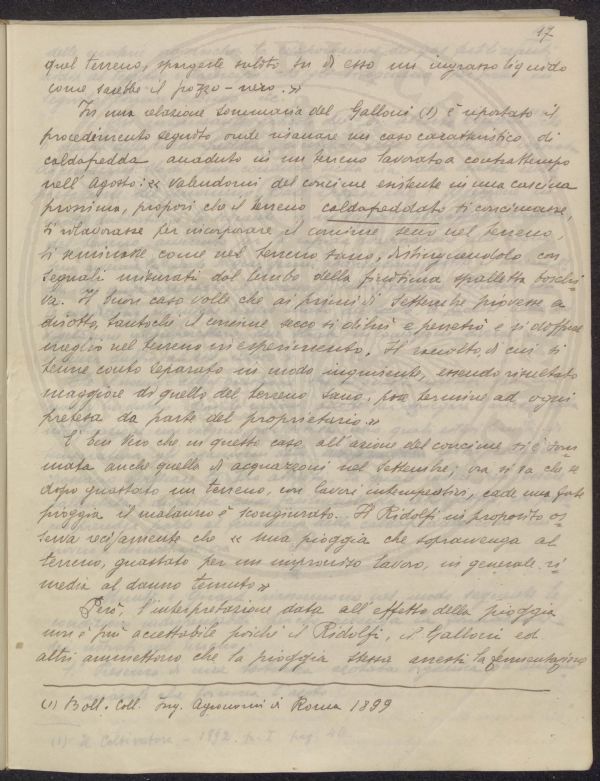 17
quel terreno, spargerte subito su di esso un ingrasso liquido
come sarebbe il pozzo-nero.»
In una relazione sommaria del Galloni (1) è riportato il
procedimento seguito onde risanare un caso caratteristico di
caldafredda avvenuto in un terreno lavorato a contrattempo
nell'Agosto: « Valendomi del concime esistente in una cascina
prossima, proposi che il terreno caldafreddato si concimasse,
si rilavorasse per incorporare il concime secco nel terreno,
si seminasse come nel terreno sano, distinguendolo con
segnali misurati dal lembo della finitima spalletta boschi-
va. Il buon caso volle che ai primi di Settembre piovesse a
dirotto, tantochè il concime secco si diluì e penetrò e si diffuse
meglio nel terreno in esperimento. Il raccolto di cui si
tenne conto separato in modo inquirente, essendo risultato
maggiore di quello del terreno sano, pose termine ad ogni
pretesa da parte del proprietario.»
È ben vero che in questo caso all'azione del concime si è som-
mata anche quella di acquazzoni nel Settembre; ora si sa che se
dopo guastato un terreno, con lavori intempestivi, cade una forte
pioggia il malanno è scongiurato. Il Ridolfi in proposito os-
serva recisamente che « una pioggia che sopravvenga al
terreno, guastato per un improvviso lavoro, in generale ri-
media al danno temuto»
Però, l'interpretazione data all'effetto della pioggia
non è più accettabile poichè il Ridolfi, il Galloni ed
altri ammettono che la pioggia stessa arresti la fermentazione
(1) Boll. Coll. Ing. Agronomi di Roma 1899
(1) Il Coltivatore - 1892. p. I pag. 40